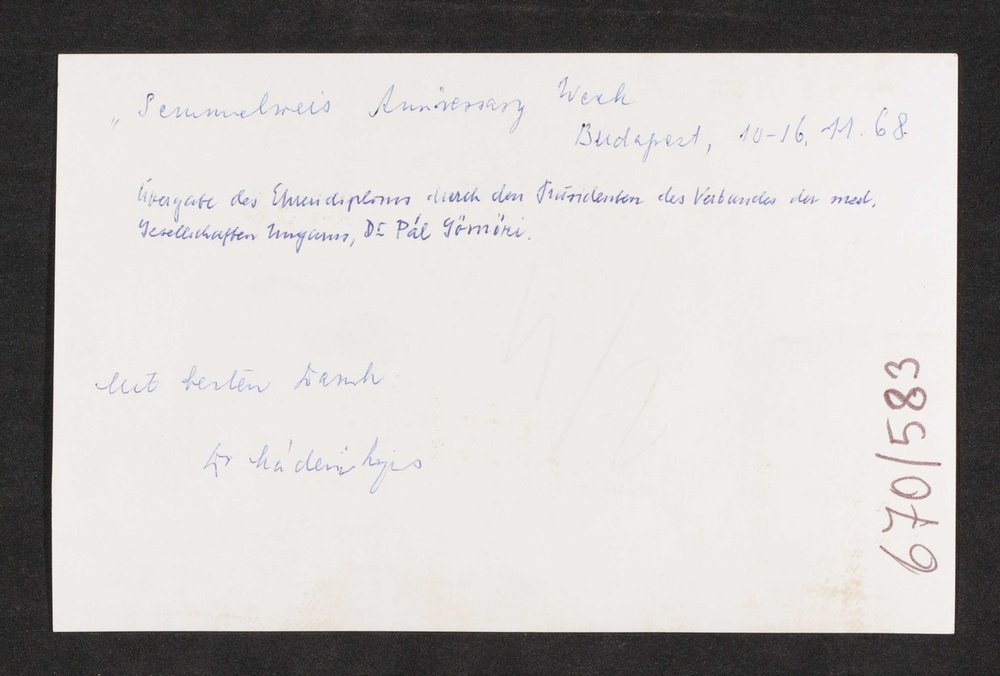 „Semmelweis Anniversary Week
Budapest, 10-16. 11. 68
Übergabe des Ehrendiploms durch den Präsidenten des Verbandes der med.
Gesellschaften Ungarns, Dr Pál Gömöri.
Mit besten Dank
Dr Lajos
670/583